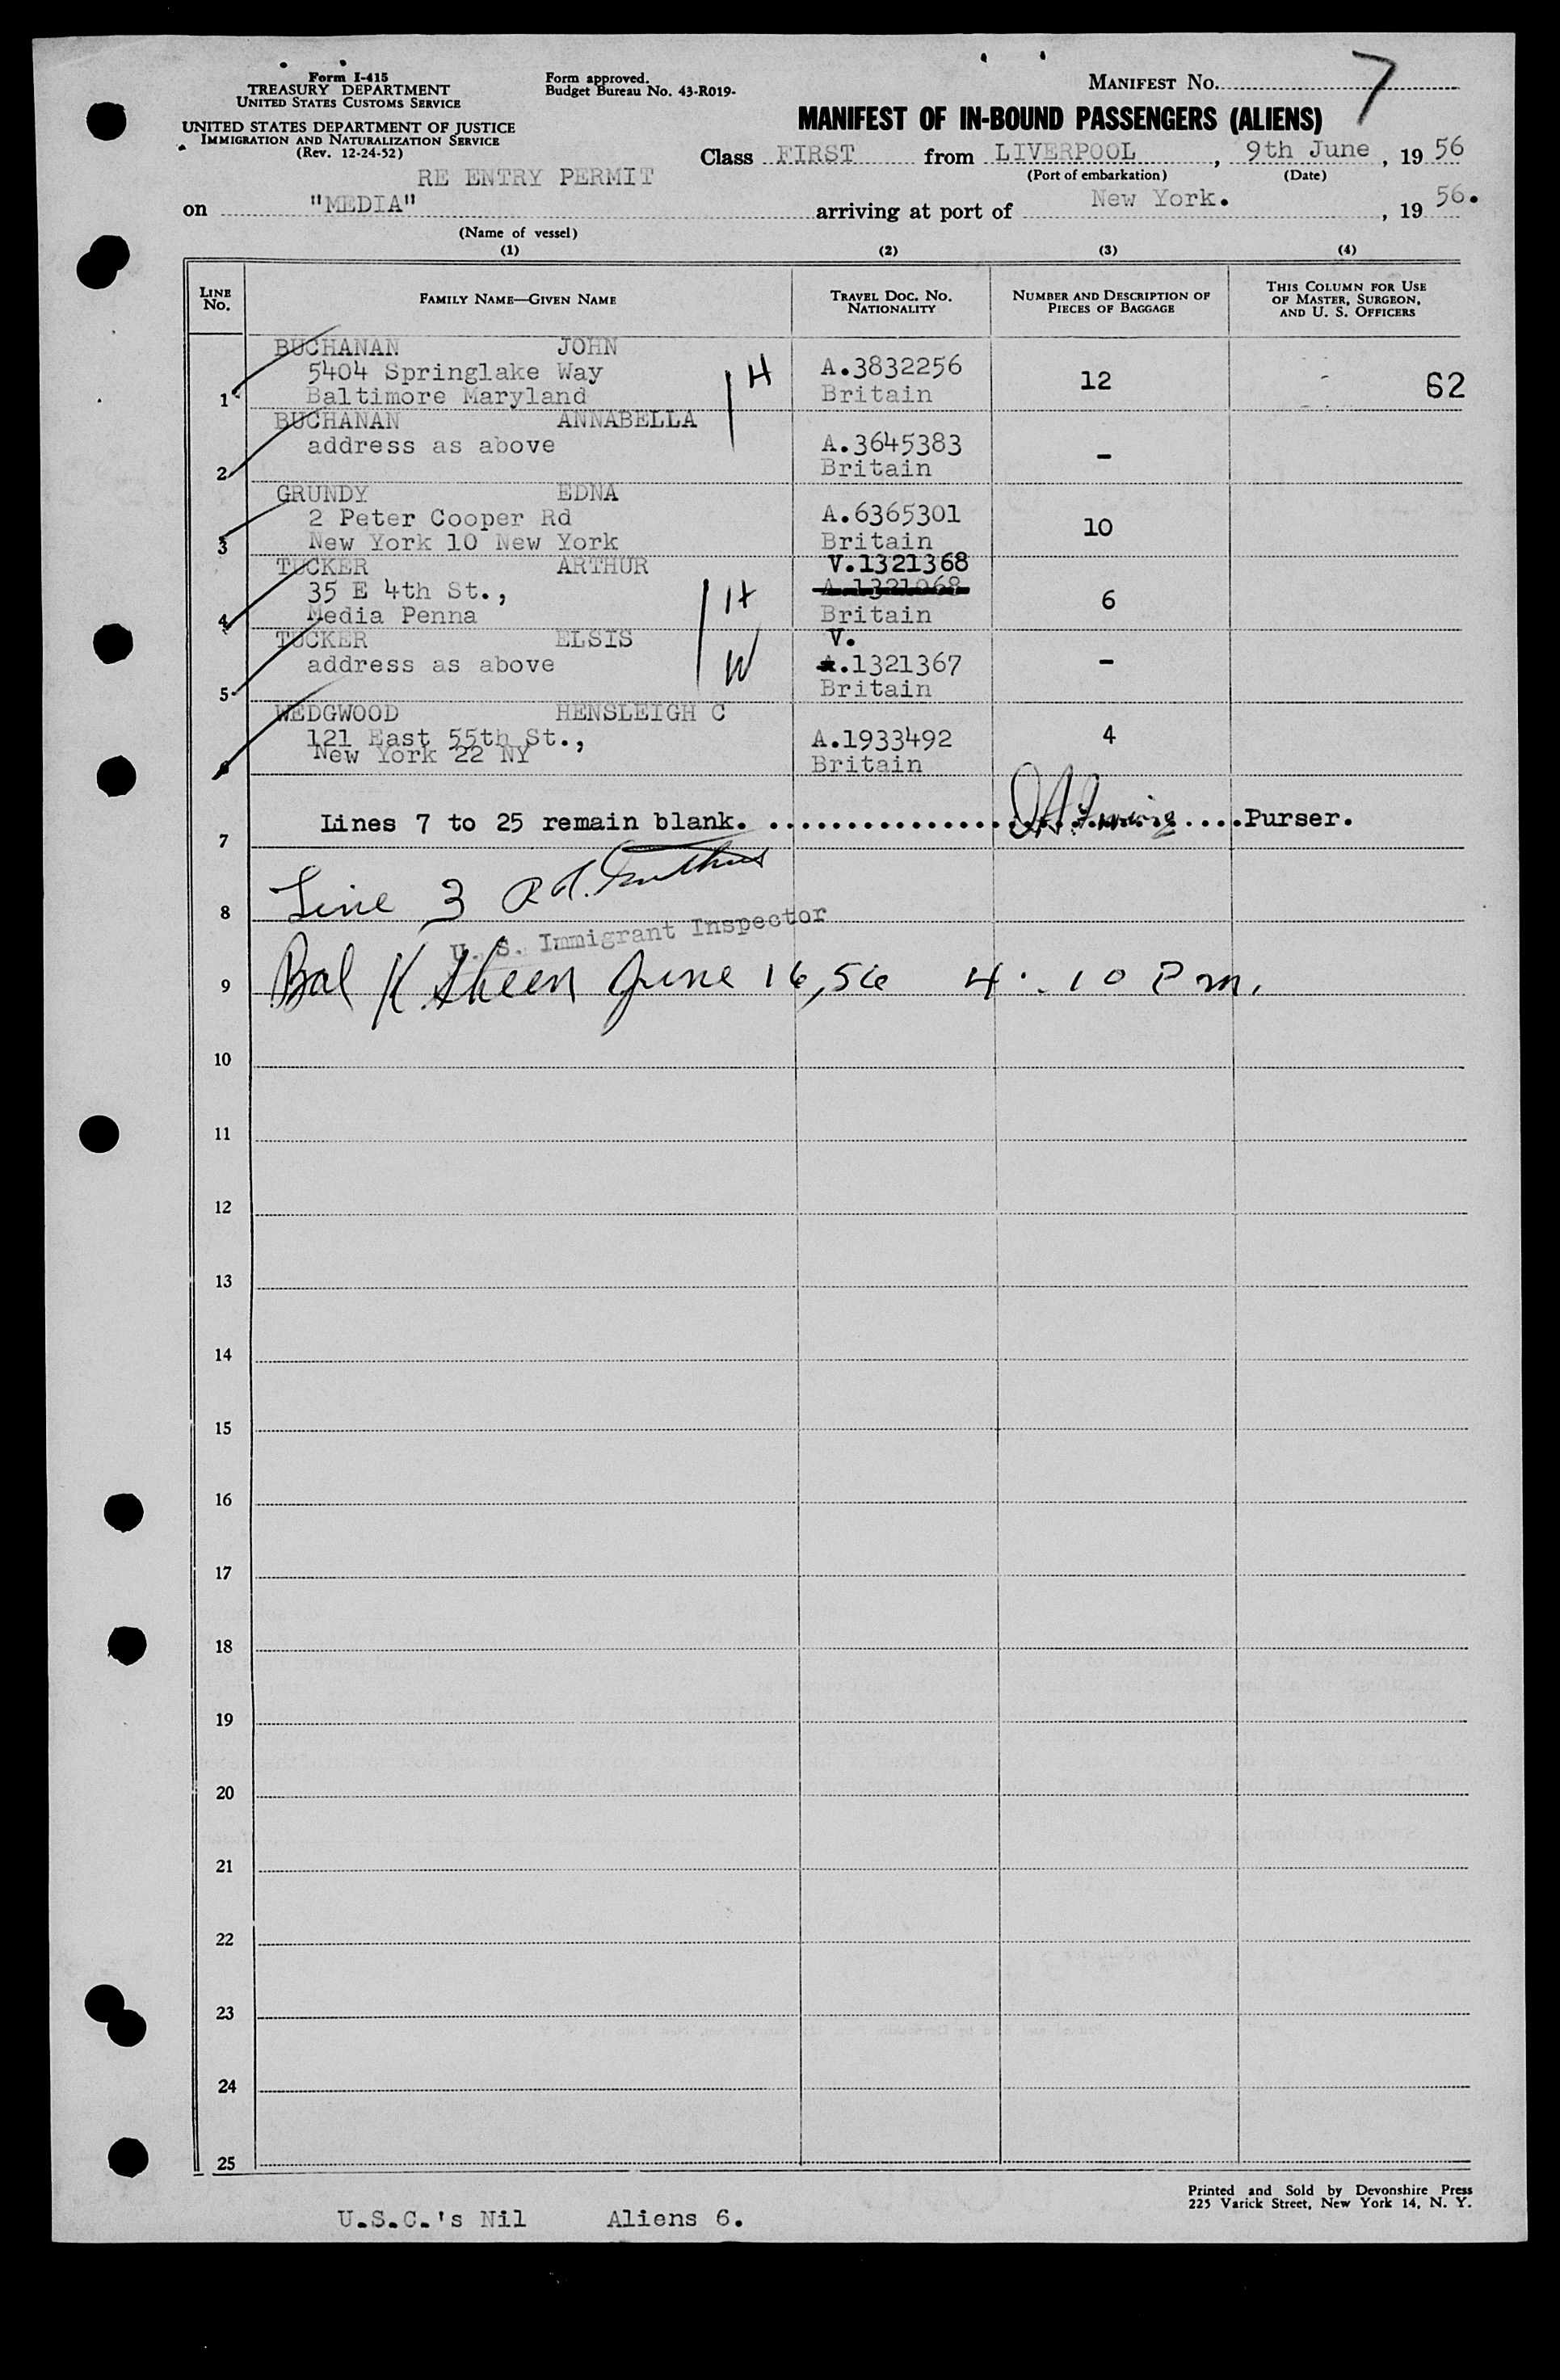 Form I-415
TREASURY DEPARTMENT
UNITED STATES CUSTOMS SERVICE
UNITED STATES DEPARTMENT OF JUSTICE
IMMIGRATION AND NATURALIZATION SERVICE
(Rev. 12-24-52)
Form approved.
Budget Bureau No. 43-R019-
MANIFEST No. 7
MANIFEST OF IN-BOUND PASSENGERS (ALIENS)
Class FIRST from LIVERPOOL, 9th June, 19 56
(Port of embarkation) (Date)
RE ENTRY PERMIT
on "MEDIA" arriving at port of New York., 19 56.
(Name of vessel)
(1) (2) (3) (4)
LINE No. FAMILY NAME—GIVEN NAME TRAVEL DOC. No. NATIONALITY NUMBER AND DESCRIPTION OF PIECES OF BAGGAGE THIS COLUMN FOR USE OF MASTER, SURGEON, AND U. S. OFFICERS
BUCHANAN JOHN
5404 Springlake Way H A.3832256 12 62
1 Baltimore Maryland Britain
BUCHANAN ANNABELLA
address as above A.3645383 -
2 Britain
GRUNDY EDNA
2 Peter Cooper Rd A.6365301 10
3 New York 10 New York Britain
TUCKER ARTHUR V.1321368
35 E 4th St., H A.1321068 6
4 Media Penna Britain
TUCKER ELSIS V.
address as above W A.1321367 -
5 Britain
WEDGWOOD HENSLEIGH C
121 East 55th St., A.1933492 4
New York 22 NY Britain
6
Lines 7 to 25 remain blank. Purser.
7
8 Line 3
U. S. Immigrant Inspector
9 Bal K Sheen June 16, 56 4:10 Pm.
10
11
12
13
14
15
16
17
18
19
20
21
22
23
24
25
Printed and Sold by Devonshire Press
225 Varick Street, New York 14, N. Y.
U.S.C.'s Nil Aliens 6.